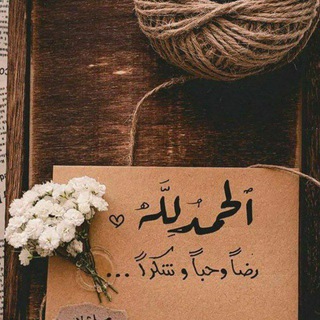 ٱلحمدُ للَّه
رضاً وحباً و شكراً ...